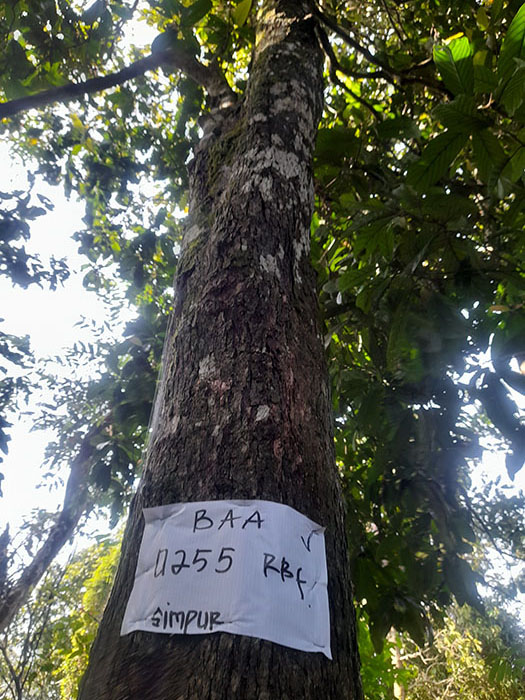 BAA
0255 RBf
simpur